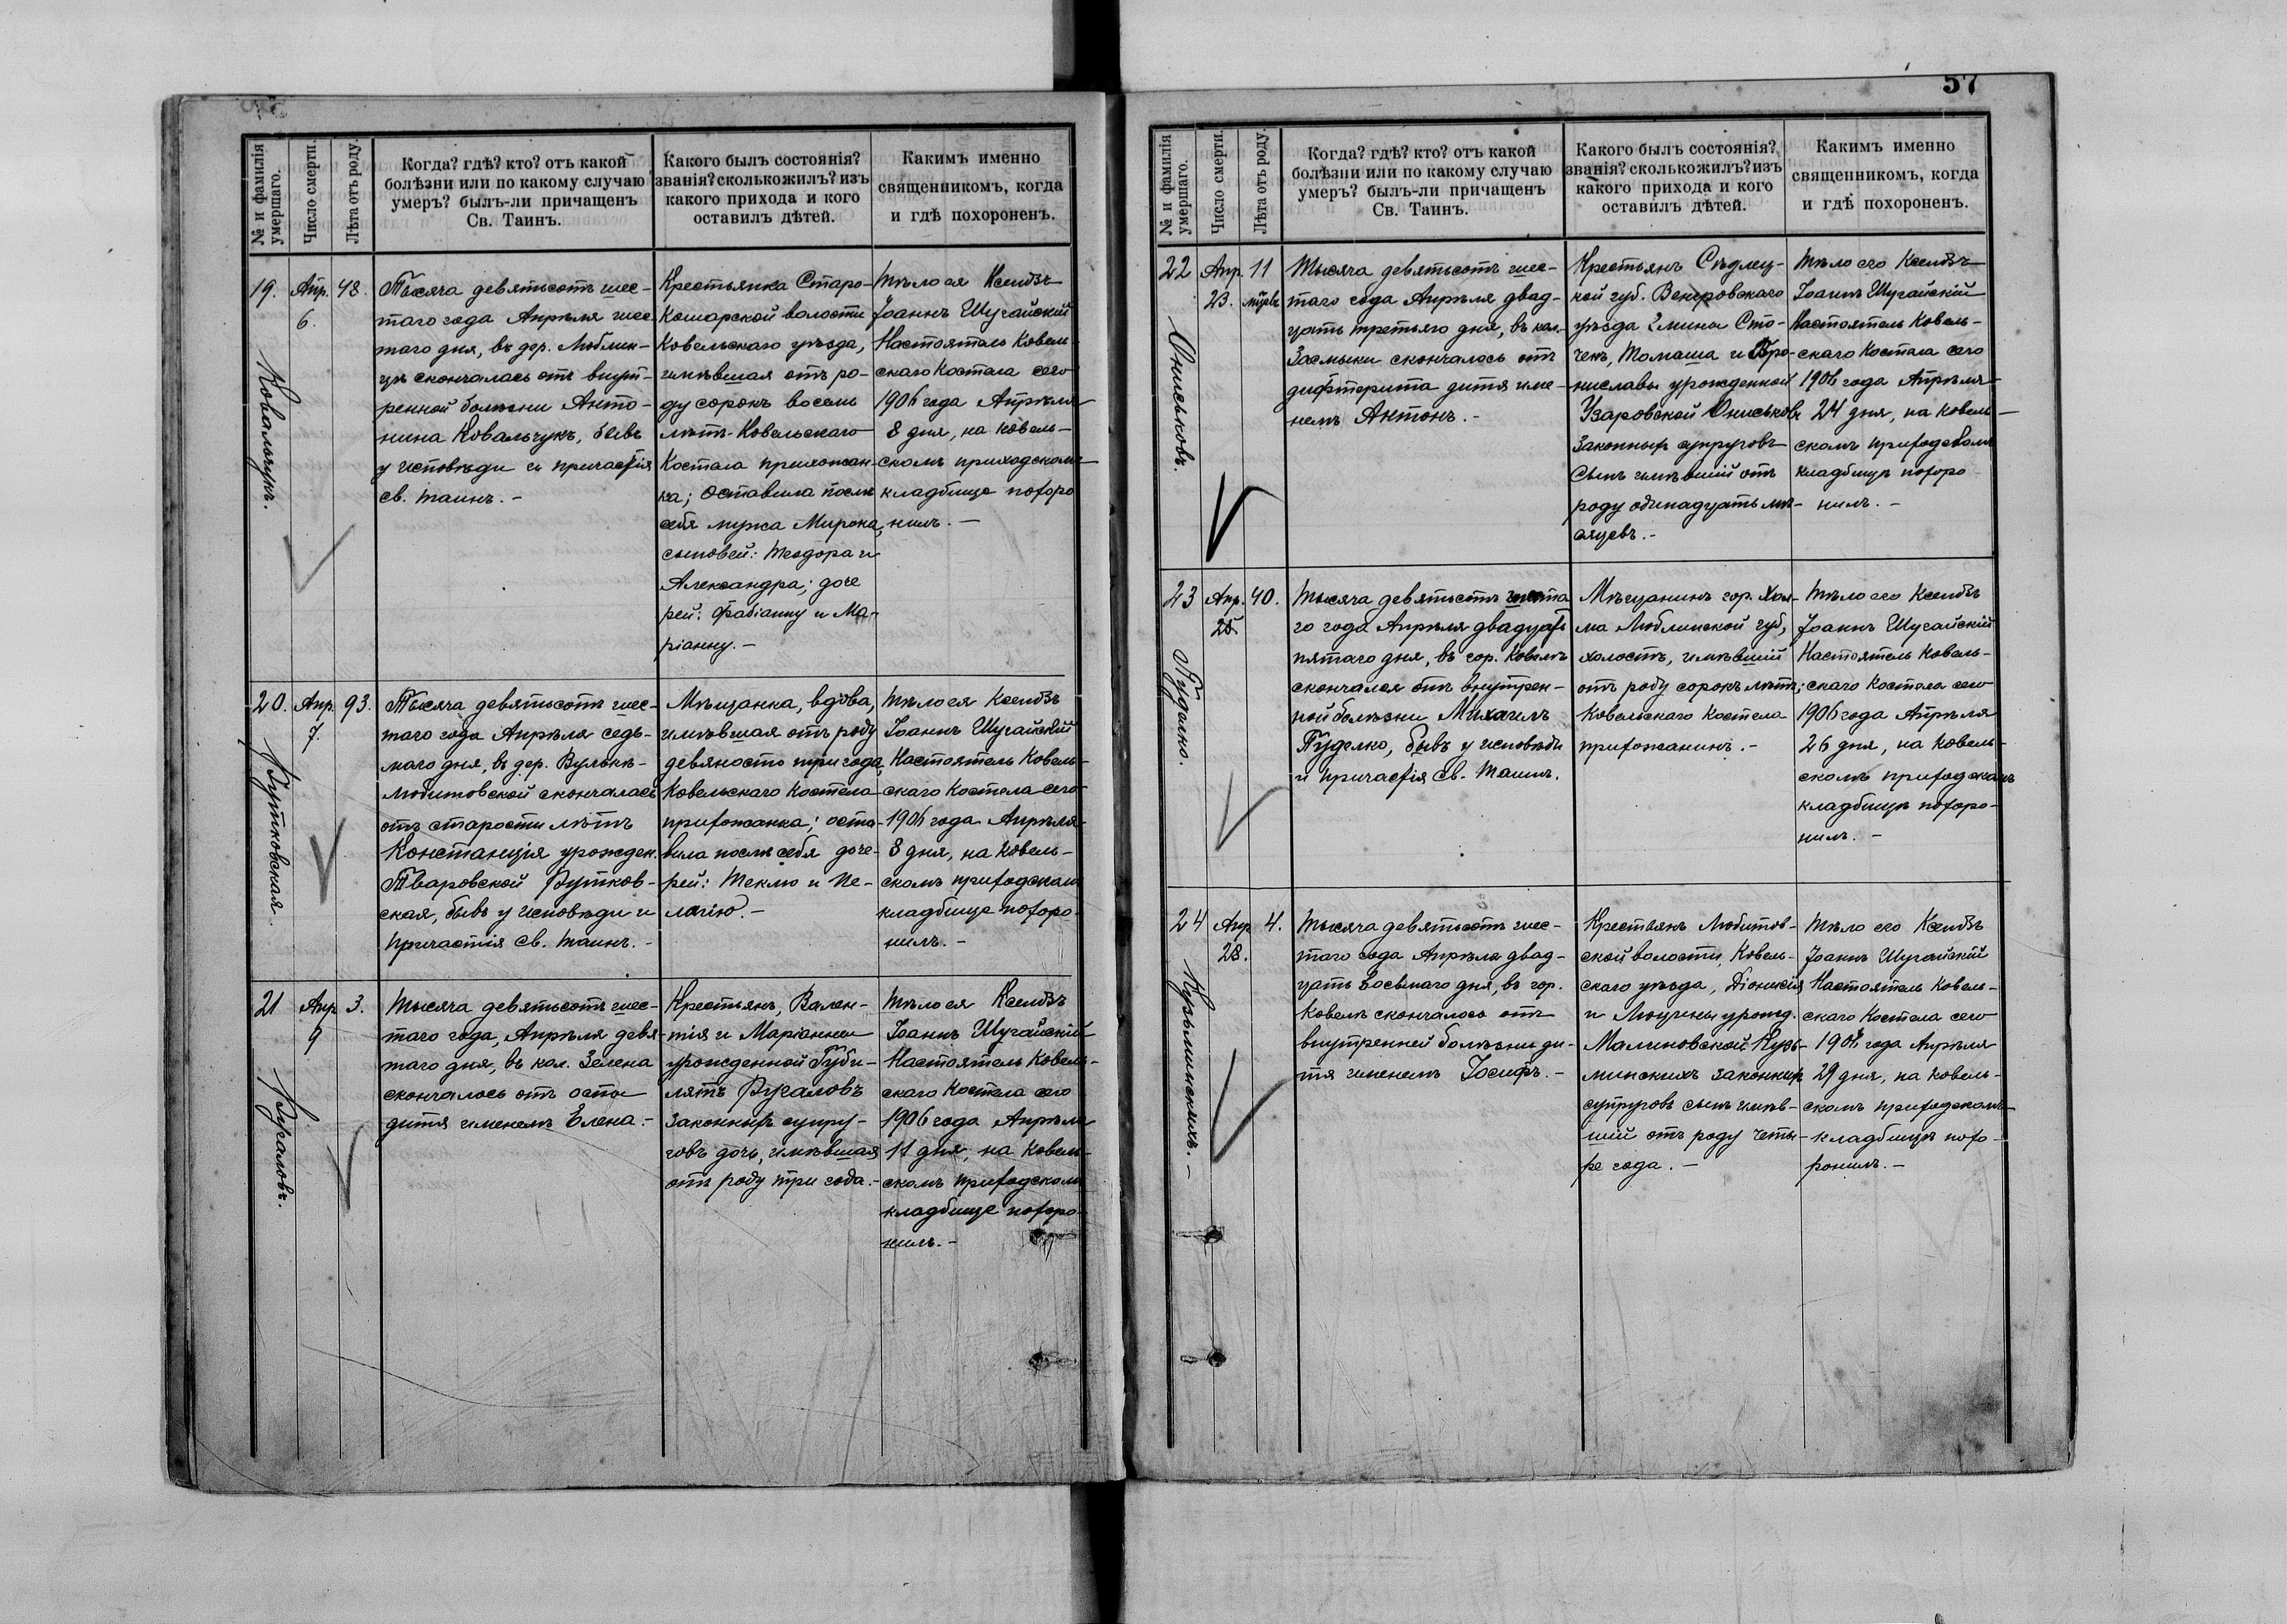 57
№ и фамилія умершаго.
Число смерти.
Лѣта отъ роду.
Когда? гдѣ? кто? отъ какой
болѣзни или по какому случаю
умеръ? былъ-ли причащенъ
Св. Таинъ.
Какого былъ состоянія?
званія? сколько жилъ? изъ
какого прихода и кого
оставилъ дѣтей.
Какимъ именно
священникомъ, когда
и гдѣ похороненъ.
19.
Ковальчукъ.
Апр.
6.
48.
Тысяча девятьсотъ шес-
таго года Апрѣля шес-
таго дня, въ дер. Люблин-
цѣ скончалась отъ внут-
ренной болѣзни Анто-
нина Ковальчукъ, бывъ
у исповѣди и причастія
св. таинъ. -
Крестьянка Старо-
Кошарской волости
Ковельскаго уѣзда,
имѣвшая отъ ро-
ду сорокъ восемь
лѣтъ Ковельскаго
Костела прихожан-
ка; оставила послѣ
себя мужа Мирона,
сыновей: Теодора и
Александра; доче
рей: Фабіанну и Ма-
ріанну. -
Тѣло ея Ксендзъ
Іоаннъ Шугайскій
Настоятель Ковель-
скаго Костела сего
1906 года Апрѣля
8 дня, на Ковель-
скомъ приходскомъ
кладбище похоро
нилъ. -
20.
Рутковская.
Апр.
7.
93.
Тысяча девятьсотъ шес-
таго года Апрѣля седь-
маго дня, въ дер. Вулькѣ-
Любитовской скончалась
отъ старости лѣтъ
Констанція урожден.
Тваровской Рутков-
ская, бывъ у исповѣди и
причастія св. таинъ. -
Мѣщанка, вдова,
имѣвшая отъ роду
девяносто три года,
Ковельскаго Костела
прихожанка; оста-
вила послѣ себя доче-
рей: Теклю и Пе-
лагію. -
Тѣло ея Ксендзъ
Іоаннъ Шугайскій
Настоятель Ковель-
скаго Костела сего
1906 года Апрѣля
8 дня, на Ковель-
скомъ приходскомъ
кладбище похоро-
нилъ. -
21
Ругаловъ.
Апр
9
3.
Тысяча девятьсотъ шес-
таго года, Апрѣля девя-
таго дня, въ кол. Зелена
скончалось отъ оспы
дитя именемъ Елена. -
Крестьянъ, Вален-
тія и Маріанны
урожденной Губи-
лятъ Ругаловъ
законныхъ супру-
говъ дочь, имѣвшая
отъ роду три года. -
Тѣло ея Ксендзъ
Іоаннъ Шугайскій
Настоятель Ковель-
скаго Костела сего
1906 года Апрѣля
11 дня, на Ковель-
скомъ приходскомъ
кладбище похоро-
нилъ. -
№ и фамилія умершаго.
Число смерти.
Лѣта отъ роду.
Когда? гдѣ? кто? отъ какой
болѣзни или по какому случаю
умеръ? былъ-ли причащенъ
Св. Таинъ.
Какого былъ состоянія?
званія? сколько жилъ? изъ
какого прихода и кого
оставилъ дѣтей.
Какимъ именно
священникомъ, когда
и гдѣ похороненъ.
22
Ониськовъ.
Апр.
23.
11
мѣсяц.
Тысяча девятьсотъ шес-
таго года Апрѣля двад-
цать третьяго дня, въ кол.
Засмыки скончалось отъ
дифтерита дитя име-
немъ Антонъ. -
Крестьянъ Сѣдлец-
кой губ. Венгровскаго
уѣзда Гмины Сто-
чекъ, Томаша и Бро-
ниславы урожденной
Узаровской Ониськовъ
законныхъ супруговъ
сынъ имѣвшій отъ
роду одинадцать мѣ-
сяцевъ. -
Тѣло его Ксендзъ
Іоаннъ Шугайскій
Настоятель Ковель-
скаго Костела сего
1906 года Апрѣля
24 дня, на Ковель-
скомъ приходскомъ
кладбищѣ похоро
нилъ. -
23
Пуделко.
Апр.
25.
40.
Тысяча девятьсотъ шеста
го года Апрѣля двадцать
пятаго дня, въ гор. Ковелѣ
скончался отъ внутрен-
ной болѣзни Михаилъ
Пуделко, бывъ у исповѣди
и причастія св. Таинъ.
Мѣщанинъ гор. Хол-
ма Люблинской губ.,
холостъ, имѣвшій
отъ роду сорокъ лѣтъ;
Ковельскаго Костела
прихожанинъ. -
Тѣло его Ксендзъ
Іоаннъ Шугайскій
Настоятель Ковель-
скаго Костела сего
1906 года Апрѣля
26 дня, на Ковель-
скомъ приходскомъ
кладбищѣ похоро-
нилъ. -
24
Кузьминскихъ. -
Апр
28.
4.
Тысяча девятьсотъ шес-
таго года Апрѣля двад-
цать восьмаго дня, въ гор.
Ковелѣ скончалось отъ
внутренней болѣзни ди-
тя именемъ Іосифъ. -
Крестьянъ Любитов-
ской волости, Ковель-
скаго уѣзда, Діонисія
и Люцины урожд.
Малиновской Кузь-
минскихъ законныхъ
супруговъ сынъ имѣв-
шій отъ роду четы-
ре года. -
Тѣло его Ксендзъ
Іоаннъ Шугайскій
Настоятель Ковель-
скаго Костела сего
1906 года Апрѣля
29 дня, на Ковель-
скомъ приходскомъ
кладбищѣ похо-
ронилъ. -